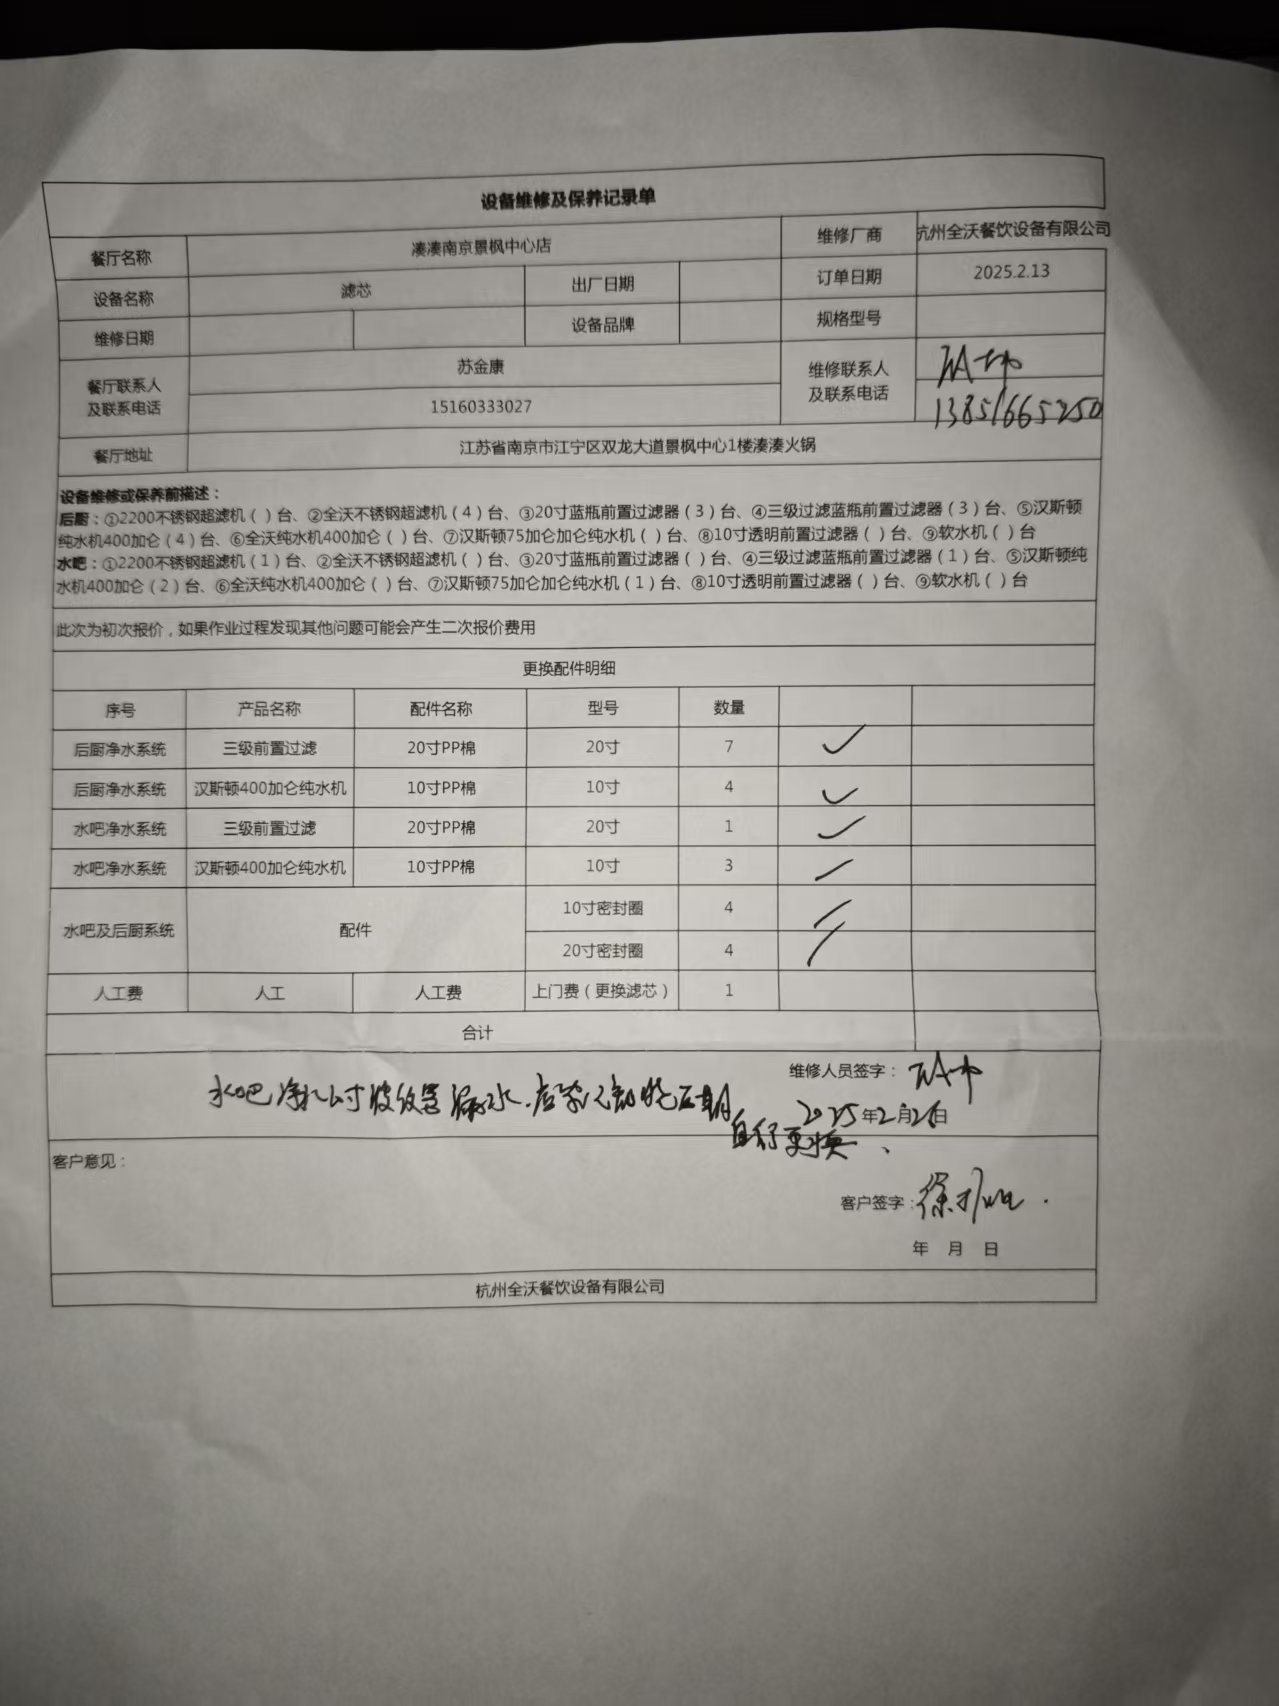 设备维修及保养记录单
餐厅名称 凑凑南京景枫中心店 维修厂商 杭州全沃餐饮设备有限公司
设备名称 滤芯 出厂日期 订单日期 2025.2.13
维修日期 设备品牌 规格型号
餐厅联系人及联系电话 苏金康 维修联系人及联系电话
15160333027 13851665250
餐厅地址 江苏省南京市江宁区双龙大道景枫中心1楼凑凑火锅
设备维修或保养前描述：
后厨：①2200不锈钢超滤机（ ）台、②全沃不锈钢超滤机（4）台、③20寸蓝瓶前置过滤器（3）台、④三级过滤蓝瓶前置过滤器（3）台、⑤汉斯顿
纯水机400加仑（4）台、⑥全沃纯水机400加仑（ ）台、⑦汉斯顿75加仑加仑纯水机（ ）台、⑧10寸透明前置过滤器（ ）台、⑨软水机（ ）台
水吧：①2200不锈钢超滤机（1）台、②全沃不锈钢超滤机（ ）台、③20寸蓝瓶前置过滤器（ ）台、④三级过滤蓝瓶前置过滤器（1）台、⑤汉斯顿纯
水机400加仑（2）台、⑥全沃纯水机400加仑（ ）台、⑦汉斯顿75加仑加仑纯水机（1）台、⑧10寸透明前置过滤器（ ）台、⑨软水机（ ）台
此次为初次报价，如果作业过程发现其他问题可能会产生二次报价费用
更换配件明细
序号 产品名称 配件名称 型号 数量
后厨净水系统 三级前置过滤 20寸PP棉 20寸 7 ✓
后厨净水系统 汉斯顿400加仑纯水机 10寸PP棉 10寸 4 ✓
水吧净水系统 三级前置过滤 20寸PP棉 20寸 1 ✓
水吧净水系统 汉斯顿400加仑纯水机 10寸PP棉 10寸 3
水吧及后厨系统 配件 10寸密封圈 4
20寸密封圈 4
人工费 人工 人工费 上门费（更换滤芯） 1
合计
维修人员签字：
水吧 漏水
2025年2月26日
自行更换、
客户意见：
客户签字：徐
年 月 日
杭州全沃餐饮设备有限公司